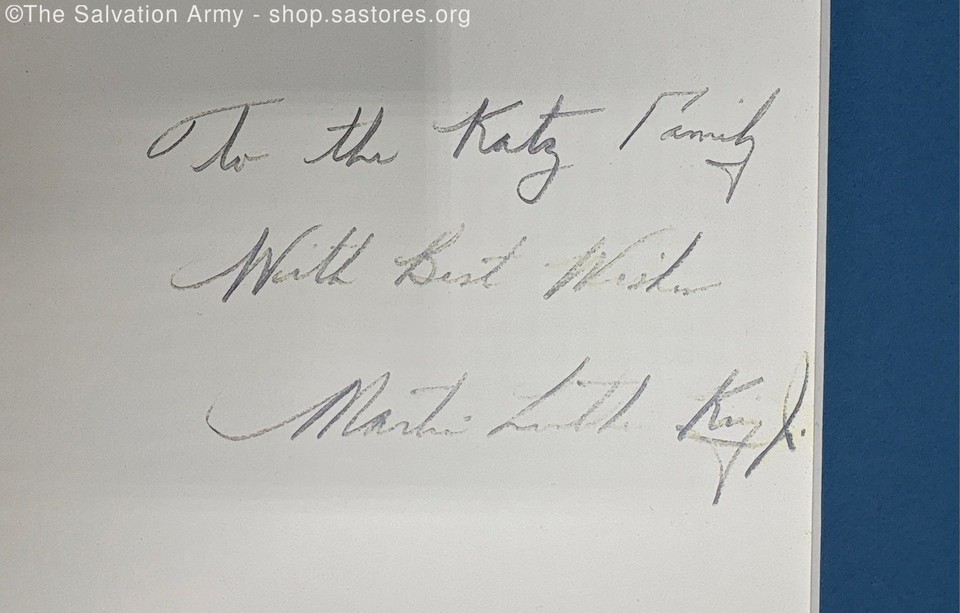 ©The Salvation Army - shop.sastores.org
To the Katz Family
With Best Wishes
Martin Luther King Jr.